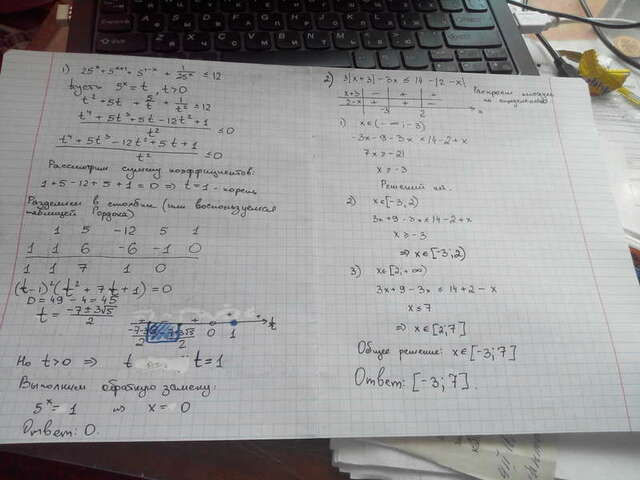 1) 25^x + 5^(x+1) + 5^(1-x) + 1/25^x ≤ 12
Пусть 5^x = t, t>0
t² + 5t + 5/t + 1/t² ≤ 12
(t⁴ + 5t³ + 5t - 12t² + 1)/t² ≤ 0
(t⁴ + 5t³ - 12t² + 5t + 1)/t² ≤ 0
Рассмотрим сумму коэффициентов:
1+5-12+5+1=0 => t=1 - корень
Разделим в столбик (или воспользуемся
таблицей Гордока)
1 5 -12 5 1
1 1 6 -6 -1 0
1 1 7 1 0
(t-1)²(t² + 7t + 1) = 0
D = 49 - 4 = 45
t = (-7±3√5)/2
0 1 t
Но t>0 => t t=1
Выполним обратную замену:
5^x = 1 => x = 0
Ответ: 0.
2) 3|x+3| - 3x ≤ 14 - |2-x|
x+3 - + +
2-x + + -
-3 2 x
по определению
1) x∈(-∞;-3)
-3x-9-3x ≤ 14-2+x
7x ≥ -21
x ≥ -3
Решений нет.
2) x∈[-3;2)
3x+9-3x ≤ 14-2+x
x ≥ -3
=> x∈[-3;2)
3) x∈[2;+∞)
3x+9-3x ≤ 14+2-x
x ≤ 7
=> x∈[2;7]
Общее решение: x∈[-3;7]
Ответ: [-3;7].